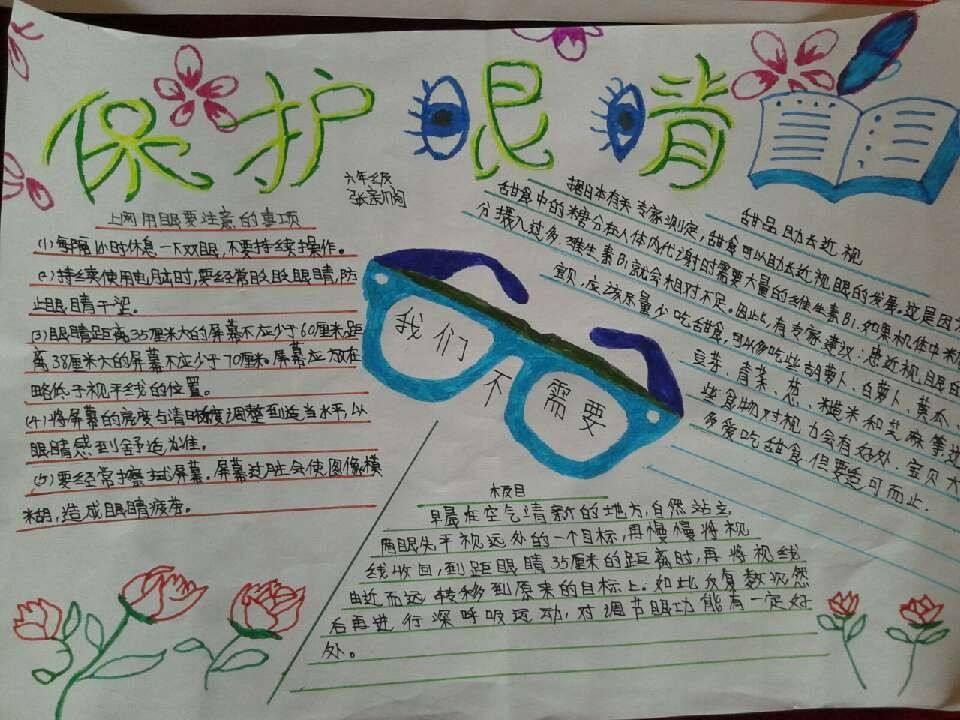 保护眼睛
六年级
上网用眼要注意的事项
(1)每隔1小时休息一下双眼,不要持续操作。
(2)持续使用电脑时,要经常眨眨眼睛,防
止眼睛干涩。
(3)眼睛距离35厘米大的屏幕不应少于60厘米,距
离38厘米大的屏幕不应少于70厘米。屏幕应放在
略低于视平线的位置。
(4)将屏幕的亮度与清晰度调整到适当水平,以
眼睛感到舒适为准。
(5)要经常擦拭屏幕。屏幕过脏会使图像模
糊,造成眼睛疲劳。
我们
不
需要
甜品助去近视
据日本有关专家测定,甜食可以助去近视眼的发展,这是因为
甜食中的糖分在人体内代谢时需要大量的维生素B1.如果机体中糖
分摄入过多,维生素B1就会相对不足。因此,有专家建议:患近视眼的
应该尽量少吃甜食,可以多吃些胡萝卜、白萝卜、黄瓜、
豆芽、青菜、葱、糙米和芝麻等这
些食物对视力会有好处。宝贝大
多爱吃甜食,但要适可而止.
极目
早晨在空气清新的地方,自然站立,
两眼先平视远处的一个目标,再慢慢将视
线收回,到距眼睛35厘米的距离时,再将视线
由近而远转移到原来的目标上。如此反复数次然
后再进行深呼吸运动,对调节眼功能有一定好
处。